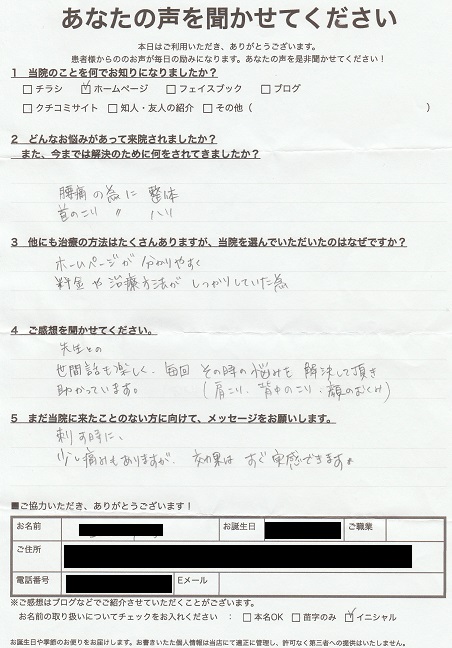 あなたの声を聞かせてください
本日はご利用いただき、ありがとうございます。
患者様からののお声が毎日の励みになります。あなたの声を是非聞かせてください！
1 当院のことを何でお知りになりましたか？
□チラシ ☑ホームページ □フェイスブック □ブログ
□クチコミサイト □知人・友人の紹介 □その他（ ）
2 どんなお悩みがあって来院されましたか？
また、今までは解決のために何をされてきましたか？
腰痛の為に 整体
首のこり 〃 ハリ
3 他にも治療の方法はたくさんありますが、当院を選んでいただいたのはなぜですか？
ホームページが分かりやすく
料金や治療方法がしっかりしていた為
4 ご感想を聞かせてください。
先生との
世間話も楽しく、毎回 その時の悩みを解決して頂き
助かっています。 （肩こり、背中のこり、顔のむくみ）
5 まだ当院に来たことのない方に向けて、メッセージをお願いします。
刺す時に、
少し痛みもありますが、効果は すぐ実感できます。
■ご協力いただき、ありがとうございます！
お名前 お誕生日 ご職業
ご住所
電話番号 Eメール
※ご感想はブログなどでご紹介させていただくことがございます。
お名前の取り扱いについてチェックをお入れください ： □本名OK □苗字のみ ☑イニシャル
お誕生日や季節のお便りをお届けします。お書きいただた個人情報は当店にて適正に管理し、許可なく第三者への提供はいたしません。